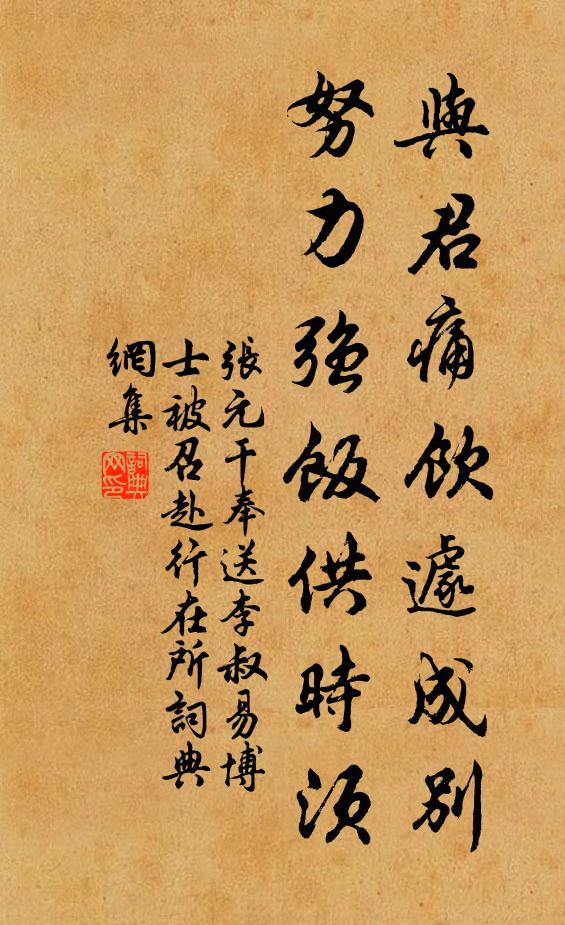 與君痛飲遽成別
努力強飯供時須
張元干奉送李叔易博
士被召赴行在所詞典
網集
詞典
网印